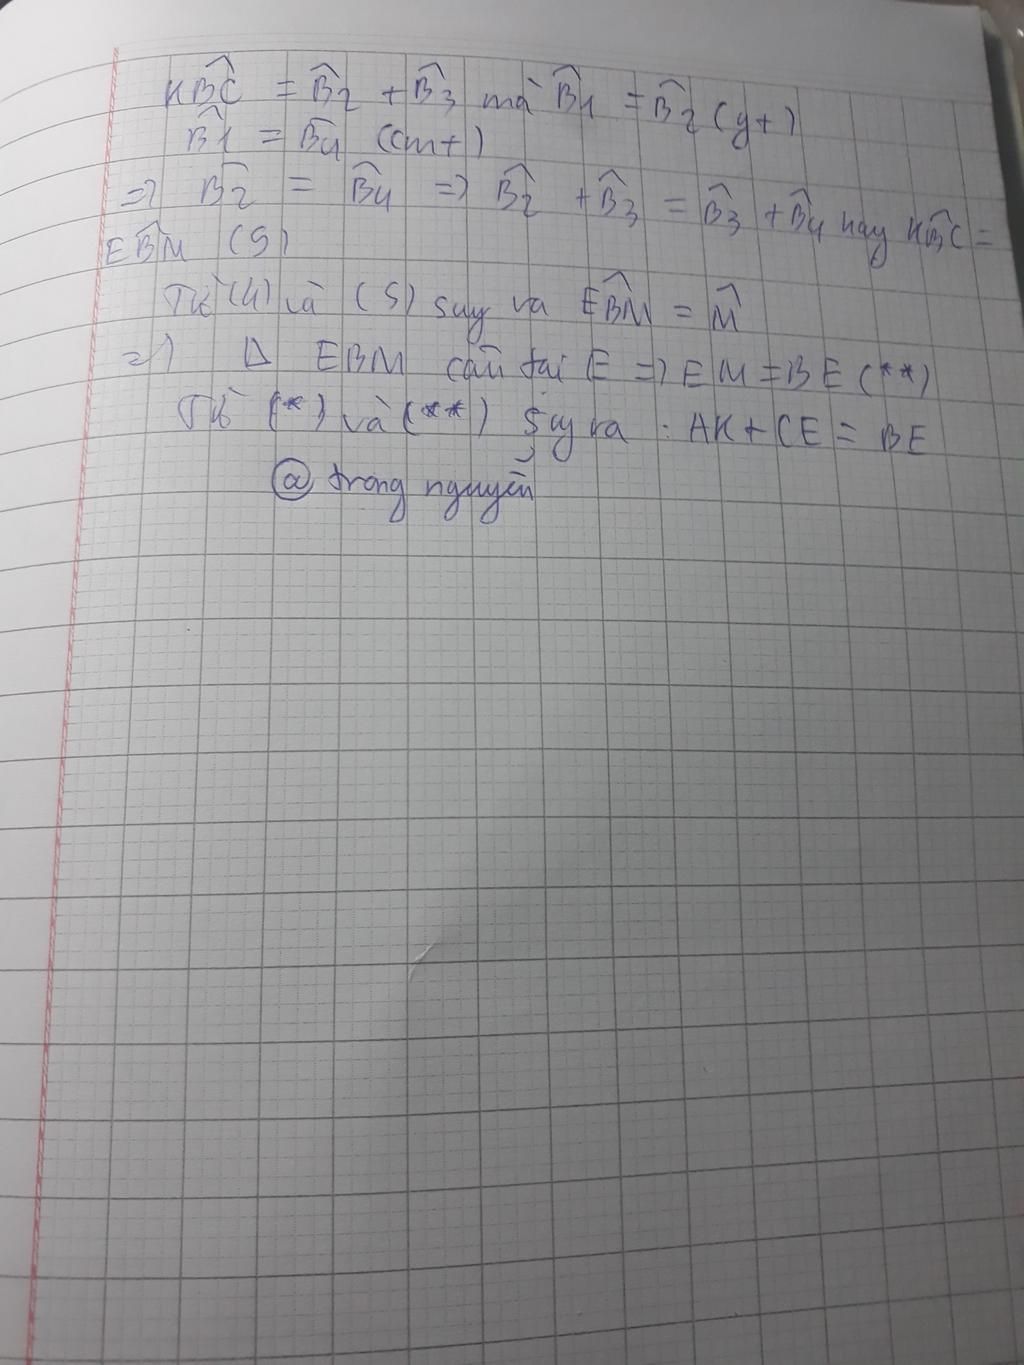 KB̂C = B̂2 + B̂3 mà B̂1 = B̂2 (gt)
B̂1 = B̂4 (cmt)
=> B̂2 = B̂4 => B̂2 + B̂3 = B̂3 + B̂4 hay KB̂C =
EB̂M (5)
Từ (4) và (5) suy ra EB̂M = M̂
=> Δ EBM cân tại E => EM = BE (**)
Từ (*) và (**) suy ra : AK + CE = BE
@ trong nguyễn